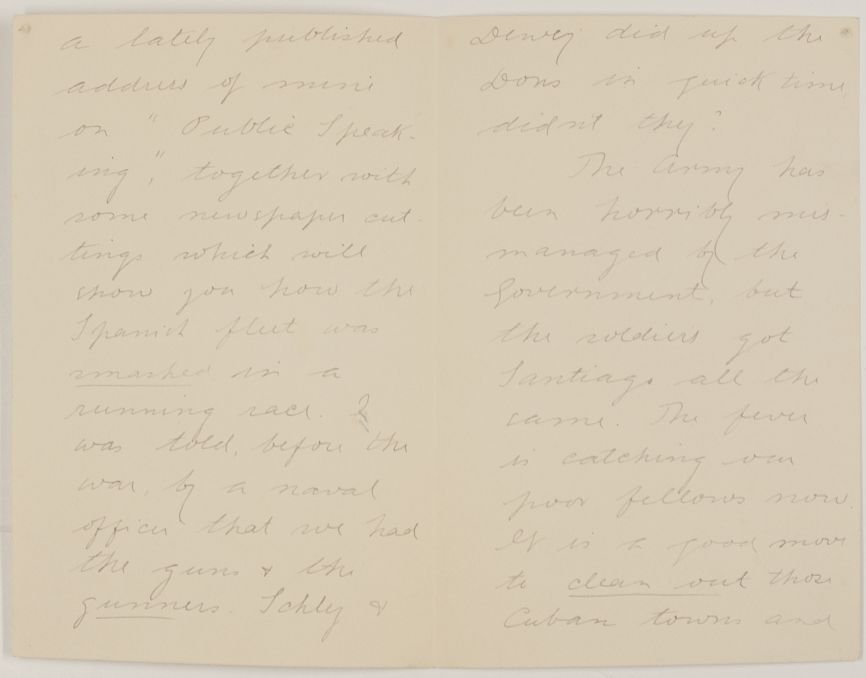 a lately published
address of mine
on " Public Speak-
ing", together with
some newspaper cut-
tings which will
show you how the
Spanish fleet was
smashed in a
running race. I
was told, before the
war, by a naval
officer that we had
the guns & the
gunners. Schley &
Dewey did up the
Dons in quick time
didn't they?
The Army has
been horribly mis-
managed by the
Government, but
the soldiers got
Santiago all the
same. The fever
is catching our
poor fellows now.
It is a good move
to clean out those
Cuban towns and